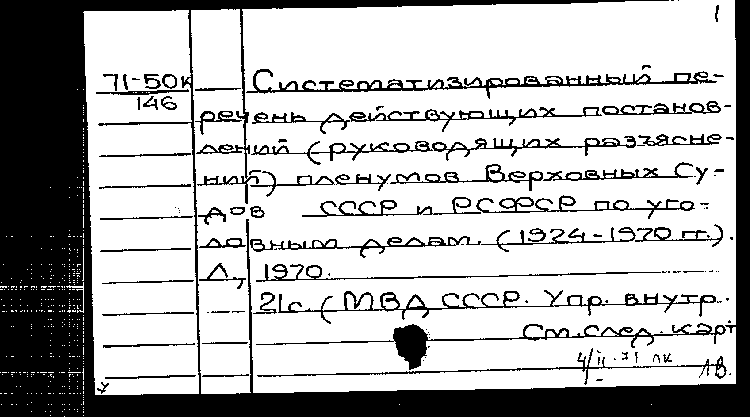 1
71-50к
146
Систематизированный пе-
речень действующих постанов-
лений (руководящих разъясне-
ний) пленумов Верховных Су-
дов СССР и РСФСР по уго-
ловным делам. (1924-1970 гг.).
Л., 1970.
21с. (МВД СССР. Упр. внутр.
См.след.карт
4/II-71 лк
ЛВ.